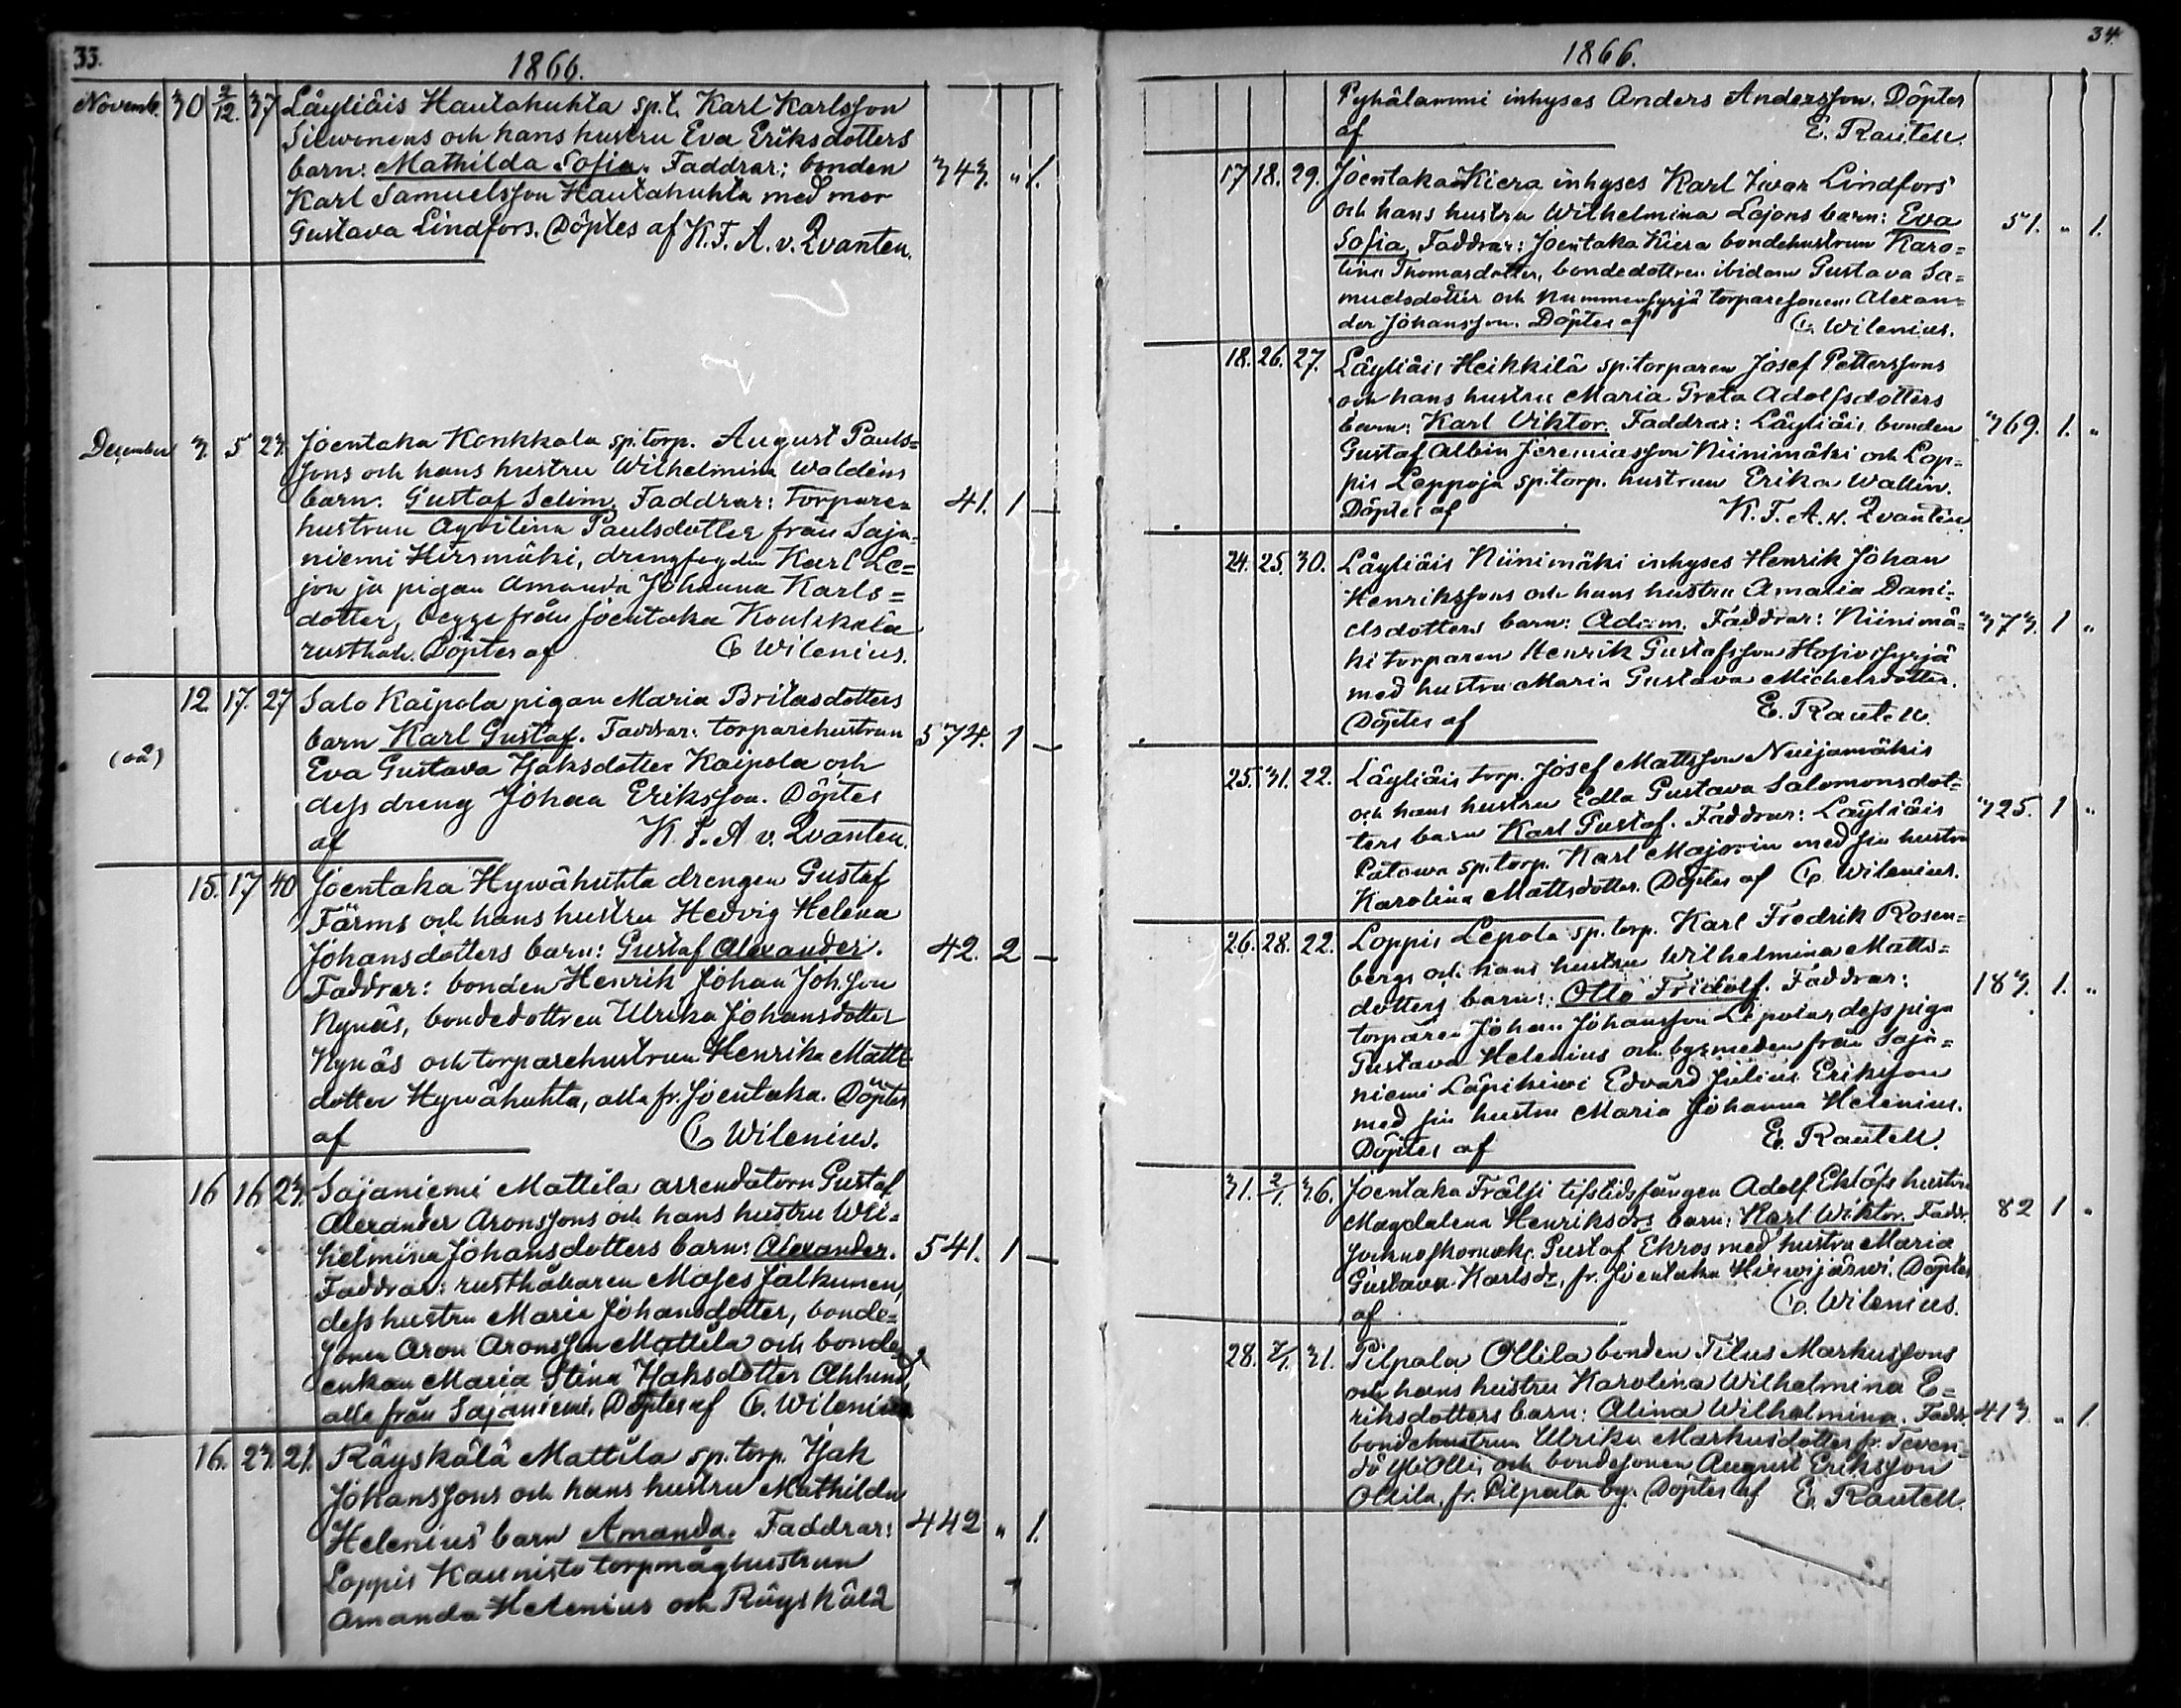 33.
1866.
Novemb. 30 2/12. 37 Läyliäis Hautahuhta sp.t. Karl Karlsson
Silwonens och hans hustru Eva Eriksdotters
barn: Mathilda Sofia. Faddrar: bonden 343. " 1.
Karl Samuelsson Hautahuhta med mor
Gustava Lindfors. Döptes af K.F.A. v. Qvanten.
December 3. 5 23. Joentaka Konkkala sp. torp. August Pauls=
sons och hans hustru Wilhelmina Waldéns
barn: Gustaf Selim. Faddrar: torpare= 41. 1 —
hustrun Aqvilina Paulsdotter från Saja=
niemi Hirsmäki, drengfogden Karl Le=
jon ja pigan Amanda Johanna Karls=
dotter, begge från Joentaka Konkkala
rusthåll. Döptes af C. Wilenius.
12. 17. 27 Salo Kaipola pigan Maria Britasdotters
barn Karl Gustaf. Faddrar: torparehustrun 574. 1 —
(oä) Eva Gustava Isaksdotter Kaipola och
dess dreng Johan Eriksson. Döptes
af K.F.A v. Qvanten.
15. 17 40 Joentaka Hywähuhta drengen Gustaf
Färms och hans hustru Hedvig Helena
Johansdotters barn: Gustaf Alexander. 42. 2 —
Faddrar: bonden Henrik Johan Johsson
Nynäs, bondedottren Ulrika Johansdotter
Nynäs och torparehustrun Henrika Matts
dotter Hywähuhta, alla fr. Joentaka. Döptes
af C. Wilenius.
16 16 23. Sajaniemi Mattila arrendatorn Gustaf
Alexander Aronssons och hans hustru Wil=
helmina Johansdotters barn: Alexander. 541. 1 —
Faddrar: rusthållaren Moses Jalkunen,
dess hustru Maria Johansdotter, bonde=
sonen Aron Aronsson Mattila och bonde=
enkan Maria Stina Isaksdotter Ahlund,
alla från Sajaniemi. Döptes af C. Wilenius
16. 23. 21. Räyskälä Mattila sp. torp. Isak
Johanssons och hans hustru Mathilda
Helenius barn Amanda. Faddrar: 442 " 1.
Loppis Kaunisto torpmåghustrun
Amanda Helenius och Räyskälä
34.
1866.
Pyhälammi inhyses Anders Andersson. Döptes
af E. Rautell.
17 18. 29. Joentaka Kiera inhyses Karl Ivar Lindfors
och hans hustru Wilhelmina Lejons barn: Eva 51. " 1.
Sofia, Faddrar: Joentaka Kiera bondehustrun Karo=
lina Thomasdotter, bondedottren ibidem Gustava Sa=
muelsdotter och Nummensyrjä torparesonen Alexan=
der Johansson. Döptes af C. Wilenius.
18. 26. 27. Läyliäis Heikkilä sp. torparen Josef Petterssons
och hans hustru Maria Greta Adolfsdotters
barn: Karl Viktor. Faddrar: Läyliäis bonden 369. 1. "
Gustaf Albin Jeremiasson Niinimäki och Lop=
pis Leppoja sp. torp. hustrun Erika Wallin.
Döptes af K.F.A.v. Qvanten
24. 25. 30. Läyliäis Niinimäki inhyses Henrik Johan
Henrikssons och hans hustru Amalia Dani=
elsdotters barn: Adam. Faddrar: Niinimä= 373. 1 "
ki torparen Henrik Gustafsson Hosiosyrjä
med hustru Maria Gustava Michelsdotter.
Döptes af E. Rautell.
25. 31. 22. Läyliäis torp. Josef Mattsson Nuijamäkis
och hans hustru Edla Gustava Salomonsdot=
ters barn Karl Gustaf. Faddrar: Läyliäis 325. 1 "
Pätowa sp. torp. Karl Majorin med sin hustru
Karolina Mattsdotter. Döptes af C. Wilenius.
26. 28. 22. Loppis Lepola sp. torp. Karl Fredrik Rosen=
bergs och hans hustru Wilhelmina Matts=
dotters barn: Otto Fridolf. Faddrar: 183. 1. "
torparen Johan Johansson Lepola, dess piga
Gustava Helenius och bysmeden från Saja=
niemi Läpikiwi Edvard Julius Eriksson
med sin hustru Maria Johanna Helenius.
Döptes af E. Rautell.
31. 2/1. 36. Joentaka Frälsi lifstidsfången Adolf Eklöfs hustru
Magdalena Henriksdrs barn: Karl Wiktor. Faddr. 82 1 "
Gustaf Ekros med hustru Maria
Gustava Karlsdr, fr. Joentaka Hirwijärwi. Döptes
af C. Wilenius.
28. 2/1. 31. Pilpala Ollila bonden Titus Markussons
och hans hustru Karolina Wilhelmina E=
riksdotters barn: Alina Wilhelmina. Faddr. 413. " 1.
bondehustrun Ulrika Markusdotter fr. Teven=
dö YliOlli och bondesonen August Eriksson
Ollila, fr. Pilpala by. Döptes af E. Rautell.